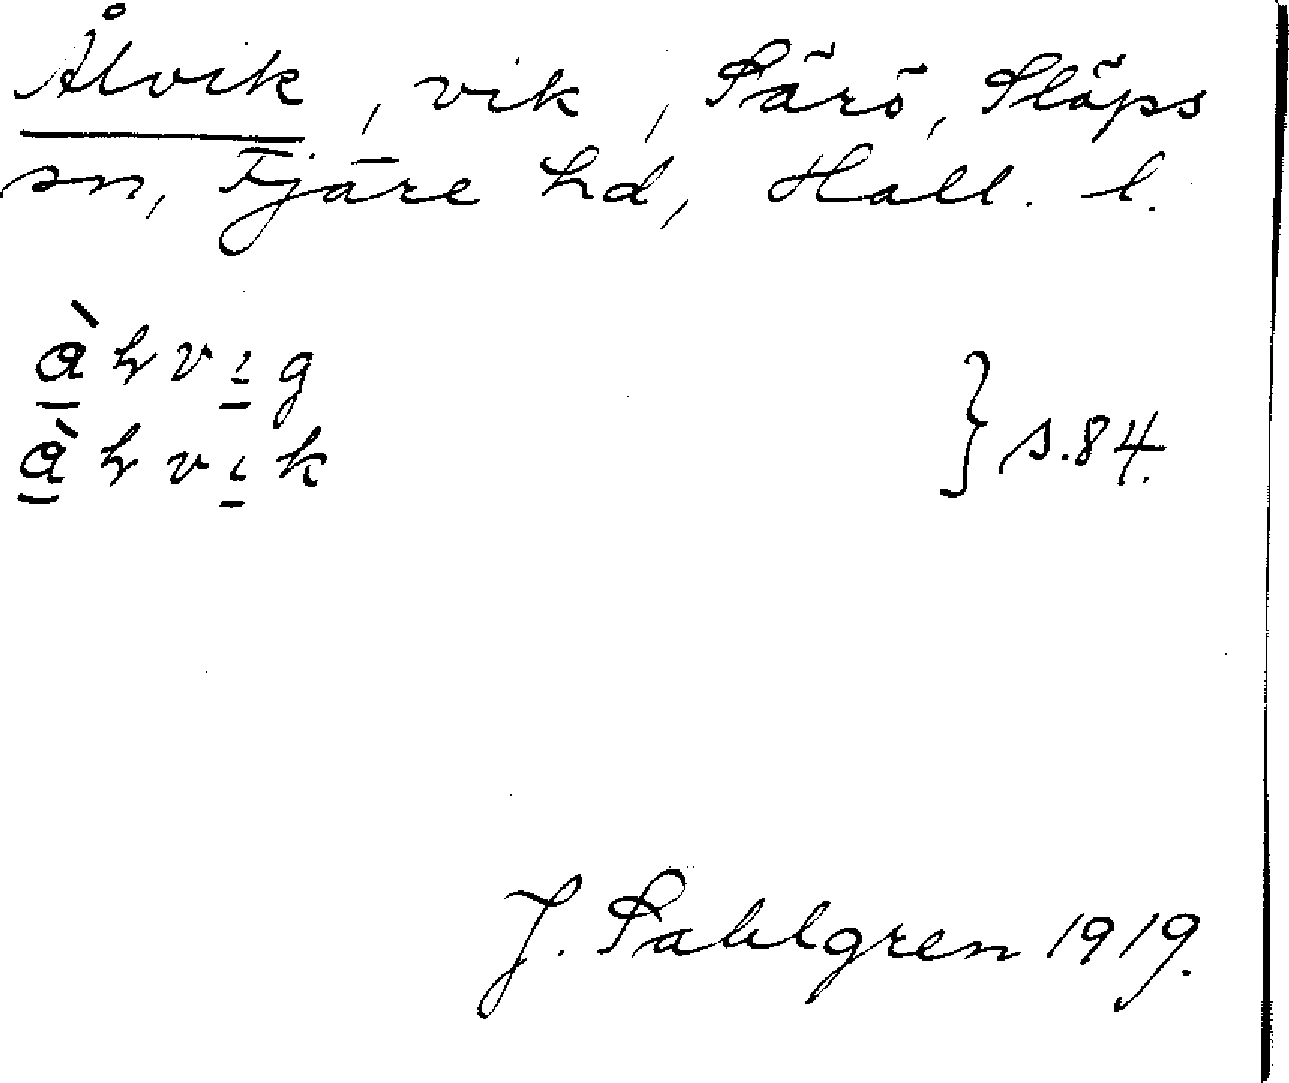 Ålvik, vik, Särö, Släps
sn, Fjäre hd, Hall. l.
àhvig
àhvik } s. 84.
J. Sahlgren 1919.